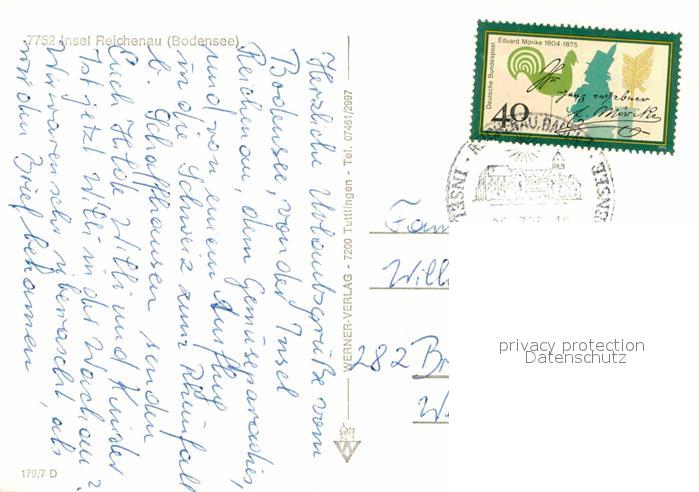 7752 Insel Reichenau (Bodensee)
Herzliche Urlaubsgrüße vom
Bodensee, von der Insel
Reichenau, dem Gemüseparadies,
und von einem Ausflug
in die Schweiz zum Rheinfall
b. Schaffhausen senden
Euch Hilde Willi und Kinder
Ist jetzt Willi in der Wachau?
Wir waren sehr überrascht, als
wir den Brief bekamen
179/7 D
WERNER-VERLAG - 7200 Tuttlingen - Tel. 07461/2997
Deutsche Bundespost
Eduard Mörike 1804-1875
40
E. Mörike
INSEL REICHENAU
Fam
Willi
282 Br
privacy protection
Datenschutz